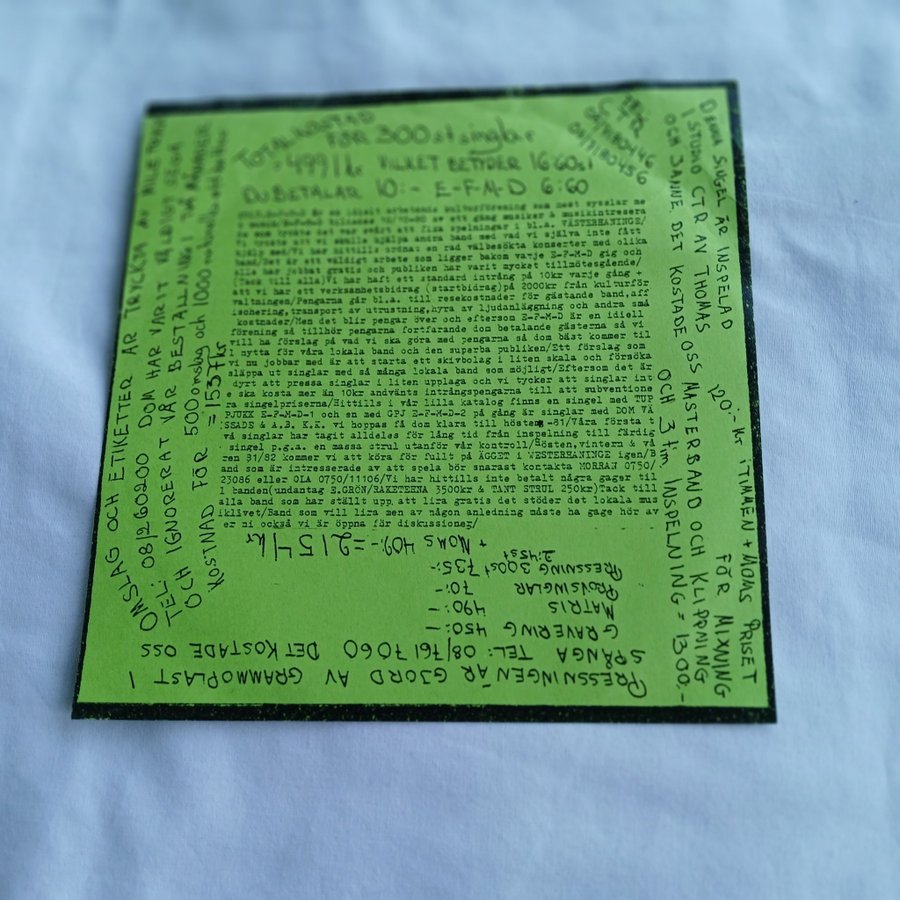 TOTALKOSTNAD
FÖR 300 st singlar
= 4991 kr VILKET BETYDER 16:60 st
DU BETALAR 10:- E-F-M-D 6:60
är en ideell arbetande kulturförening som mest sysslar me
av ett gäng musiker & musikintresera
de som tyckte det var svårt att fixa spelningar i bl.a. VÄSTERHANINGE/
i tyckte att vi skulle hjälpa andra band med vad vi själva inte fått
hjälp med/Vi har hittills ordnat en rad välbesökta konserter med olika
band. Det är ett väldigt arbete som ligger bakom varje E-F-M-D gig och
alla har jobbat gratis och publiken har varit mycket tillmötesgående/
(Tack till alla)Vi har haft ett standard inträng på 10kr varje gång +
att vi har ett verksamhetsbidrag (startbidrag)på 2000kr från kulturför
valtningen/Pengarna går bl.a. till resekostnader för gästande band,aff
ischering,transport av utrustning,hyra av ljudanläggning och andra små
kostnader/Men det blir pengar över och eftersom E-F-M-D är en idiell
förening så tillhör pengarna fortfarande dom betalande gästerna så vi
vill ha förslag på vad vi ska göra med pengarna så dom bäst kommer til
l nytta för våra lokala band och den superba publiken/Ett förslag som
vi nu jobbar med är att starta ett skivbolag i liten skala och försöka
släppa ut singlar med så många lokala band som möjligt/Eftersom det är
dyrt att pressa singlar i liten upplaga och vi tycker att singlar int
e ska kosta mer än 10kr använts inträngspengarna till att subventione
ra singelpriserna/Hittills i vår lilla katalog finns en singel med TUP
PJUKK E-F-M-D-1 och en med GPJ E-F-M-D-2 på gång är singlar med DOM VÄ
SSADE & A.B. K.K. vi hoppas få dom klara till hösten -81/Våra första t
vå singlar har tagit alldeles för lång tid från inspelning till färdig
singel p.g.a. en massa strul utanför vår kontroll/Hösten,vintern & vå
ren 81/82 kommer vi att köra för fullt på ÄGGET i WESTERHANINGE igen/B
and som är intresserade av att spela bör snarast kontakta MORRAN 0750/
23086 eller OLA 0750/11106/Vi har hittills inte betalt några gager til
l banden(undantag E.GRÖN/RAKETERNA 3500kr & TANT STRUL 250kr)Tack till
alla band som har ställt upp att lira gratis det stöder det lokala mus
iklivet/Band som vill lira men av någon anledning måste ha gage hör av
er ni också vi är öppna för diskussioner/
DENNA SINGEL ÄR INSPELAD 120:- kr I TIMMEN + MOMS PRISET
I STUDIO CTR AV THOMAS OCH 3 tim. FÖR MIXNING
OCH JANNE. DET KOSTADE OSS MASTERBAND OCH KLIPPNING
INSPELNING = 1300:-
PRESSNINGEN ÄR GJORD AV GRAMMOPLAST I
SPÅNGA TEL: 08/7617060 DET KOSTADE OSS
GRAVERING 450:-
MATRIS 490:-
PROVSINGLAR 70:-
PRESSNING 300st 735:-
2:45st
+ MOMS 409:- = 2154 kr
OMSLAG OCH ETIKETTER ÄR TRYCKTA AV
TEL: 08/260200 DOM HAR VARIT
OCH IGNORERAT VÅR BESTÄLLNING I TVÅ MÅNADER
KOSTNAD FÖR 500 omslag och 1000
= 1537 kr